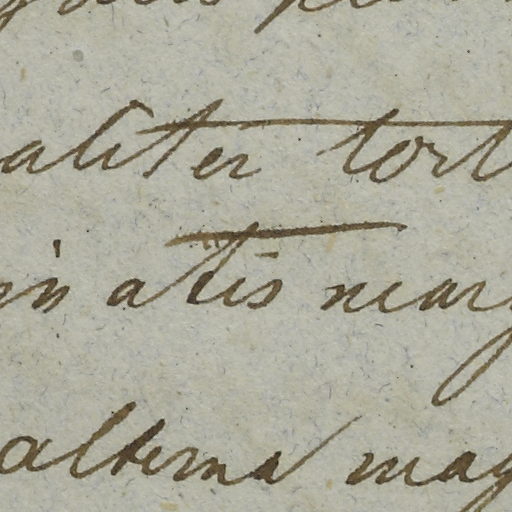 aliter tort
in atis marg
alterna mag